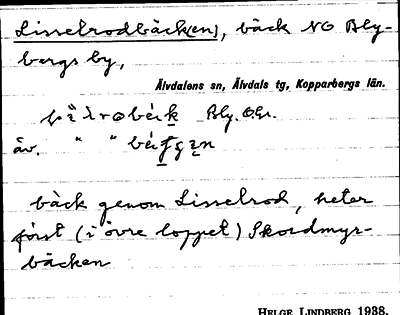 Lisselrodbäck(en), bäck NO Bly-
bergs by,
Älvdalens sn, Älvdals tg, Kopparbergs län.
Bly.
äv. " "
bäck genom Lisselrod, heter
först (i övre loppet) Skordmyr-
bäcken
HELGE LINDBERG 1938.